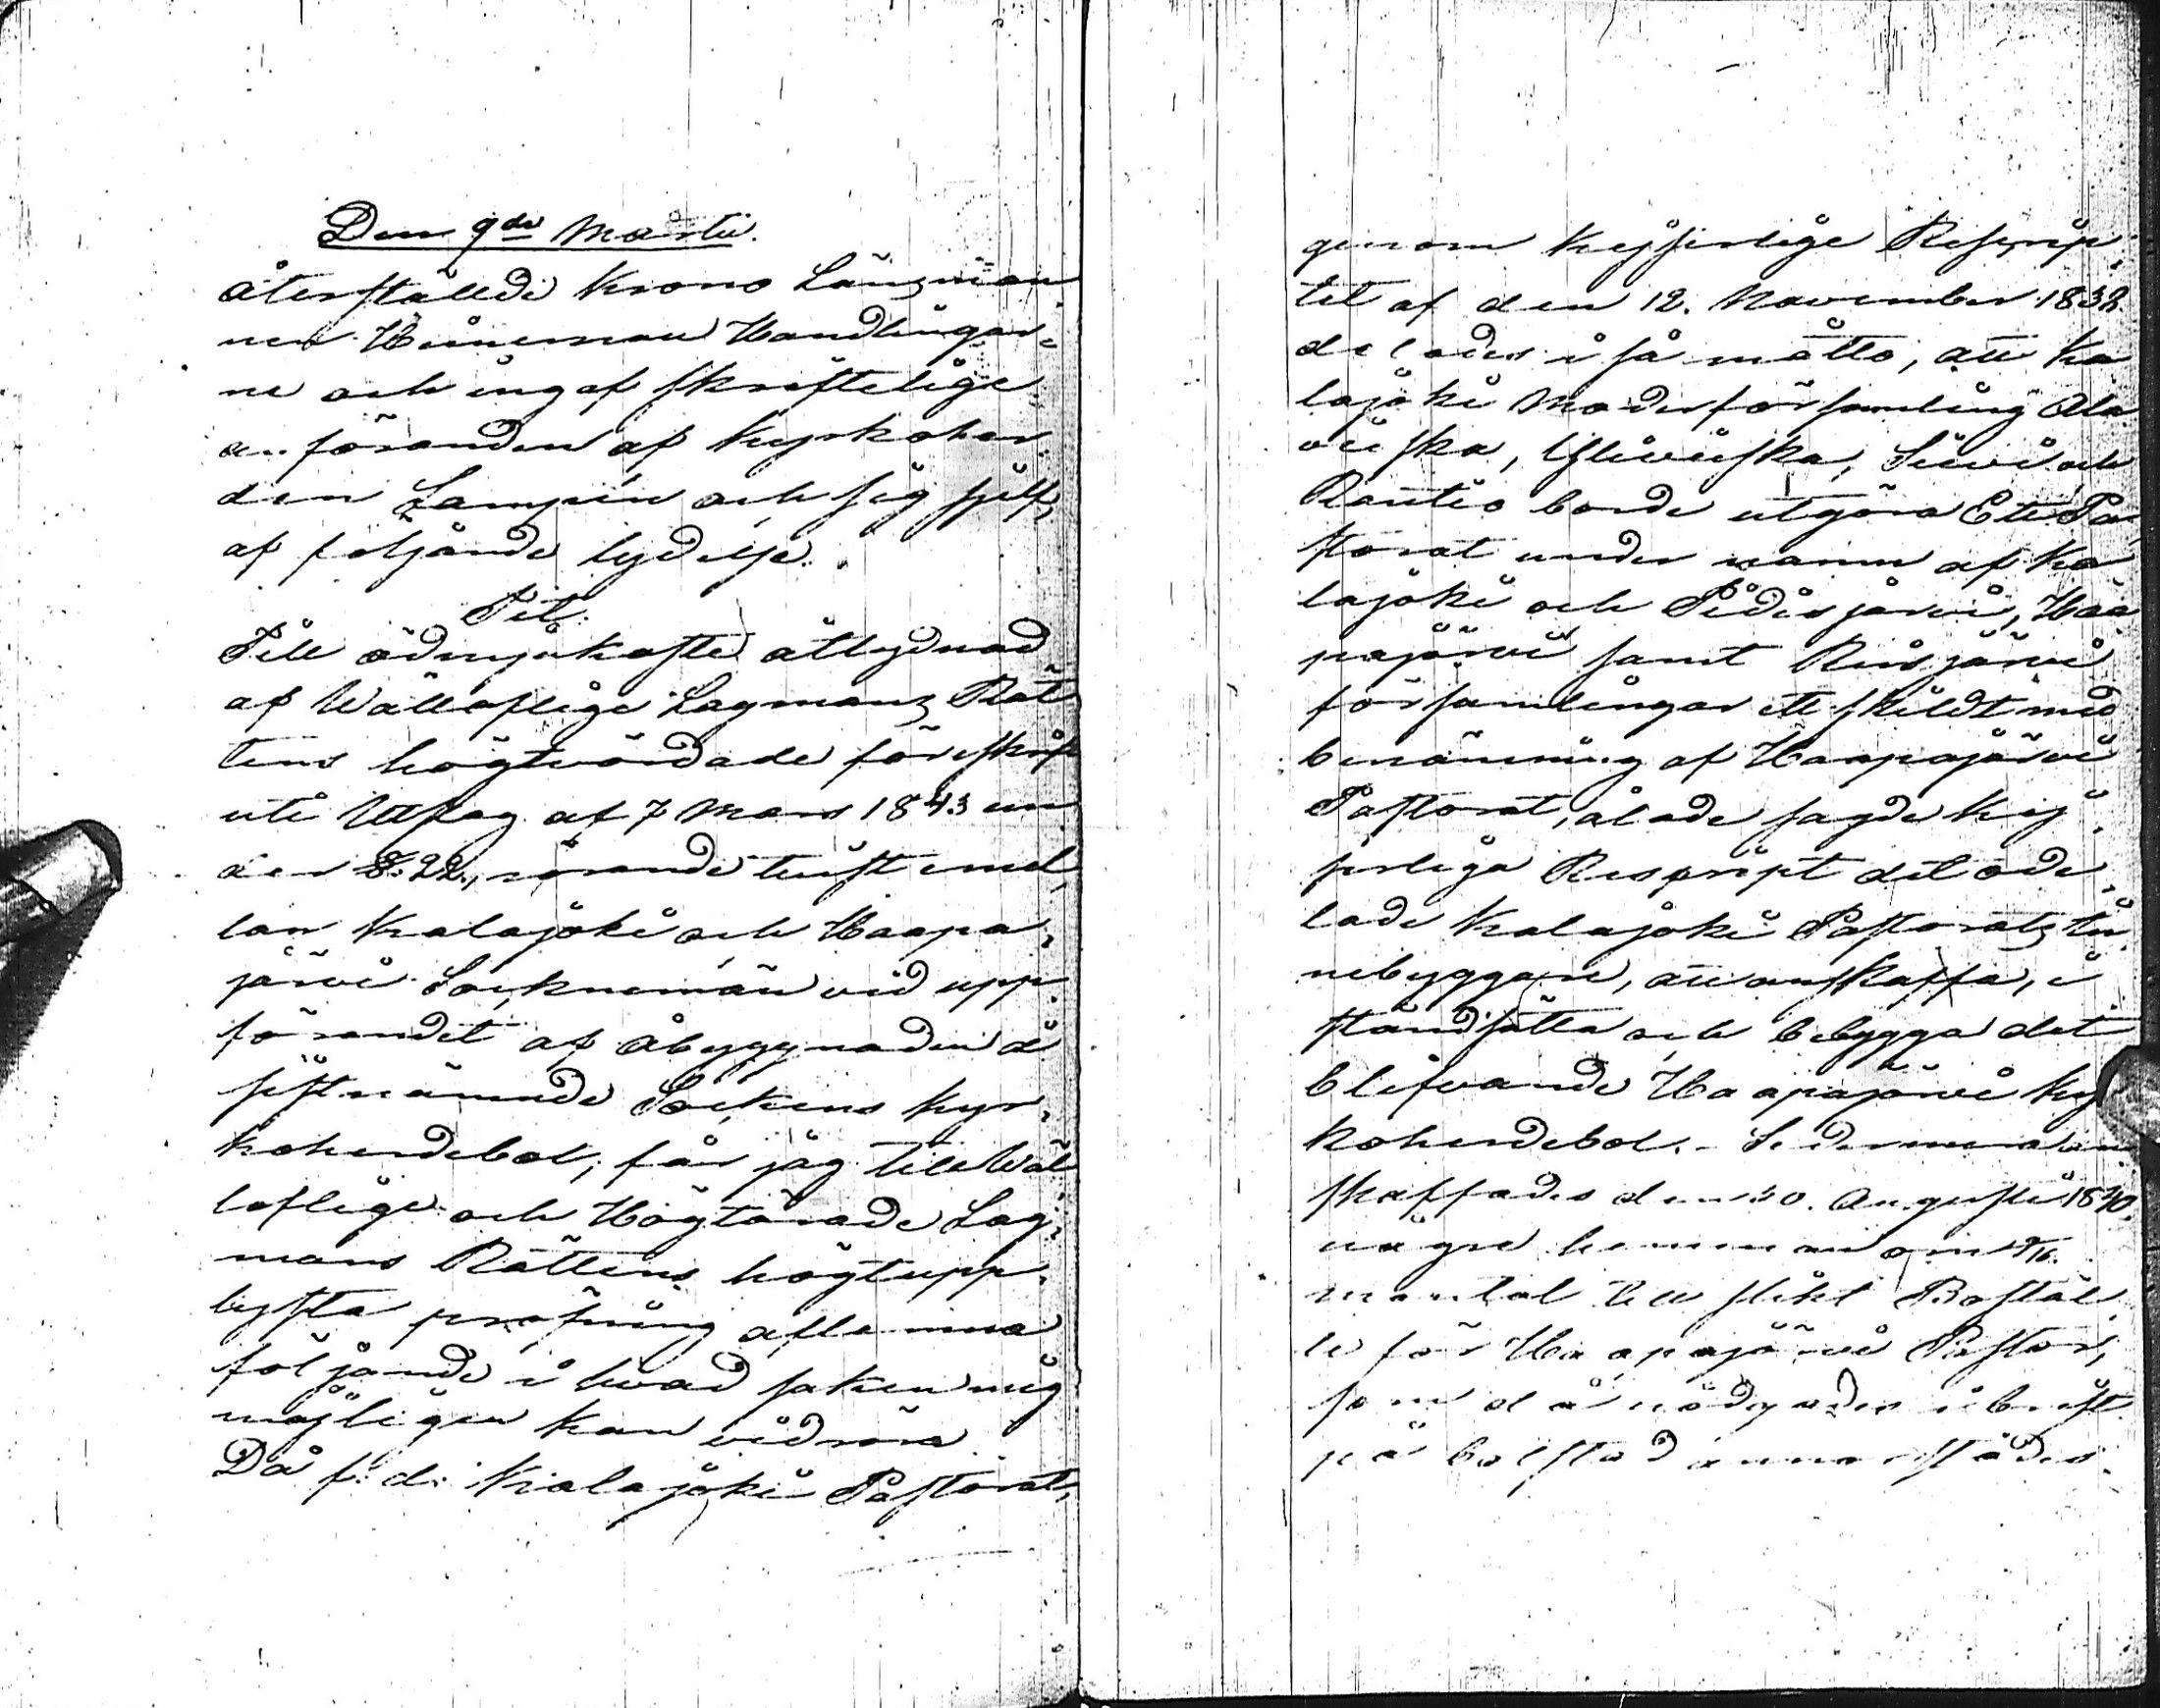 Den 9de Martii.
återställde Krono Länsman¬
nen Heineman Handlingar¬
ne och ingaf skriftelige
anföranden af Kyrkoher¬
den Lampén och sig sjelf,
af följande lydelse.
Tit.
Till ödmjukaste åtlydnad
af Wällofliga Lagmans Rät
tens högtvördade föreskrift
uti Utslag af 7 Mars 1843 un
der §. 22., rörande tvist emel¬
lan Kalajoki och Haapa¬
järvi Socknemän vid upp¬
förandet af åbyggnaden å
sistnämnde Sockens Kyr¬
koherdebol, får jag till Wäl
loflige och Högtärade Lag¬
mans Rättens högtupp¬
lysta pröfning aflemna
följande i hvad saken mig
möjligen kan vidröra
Då f: d: Kalajoki Pastorat,
genom Kejserlige Rescrip¬
tet af den 12. November 1838
delades i så måtto, att Ka
lajoki Moderförsamling Ala
viiska, Yliviiska, Sievi och
Rautio borde utgöra Ett Pa
storat under namn af Ka
lajoki och Pidisjärvi, Haa
pajärvi samt Reisjärvi
församlingar ett skildt med
benämning af Haapajärvi
Pastorat, ålade sagde Kej¬
serliga Rescript det ode¬
lade Kalajoki Pastorats in¬
nebyggare, att anskaffa, i
ståndsätta och bebygga det
blifvande Haapajärvi Kyr
koherdebol. - Sedermera an
skaffades den 30. Augusti 1840,
mantal till slikt Bostäl¬
le för Haapajärvi Pastor,
som då nödgades i brist
på bolstad annorstädes